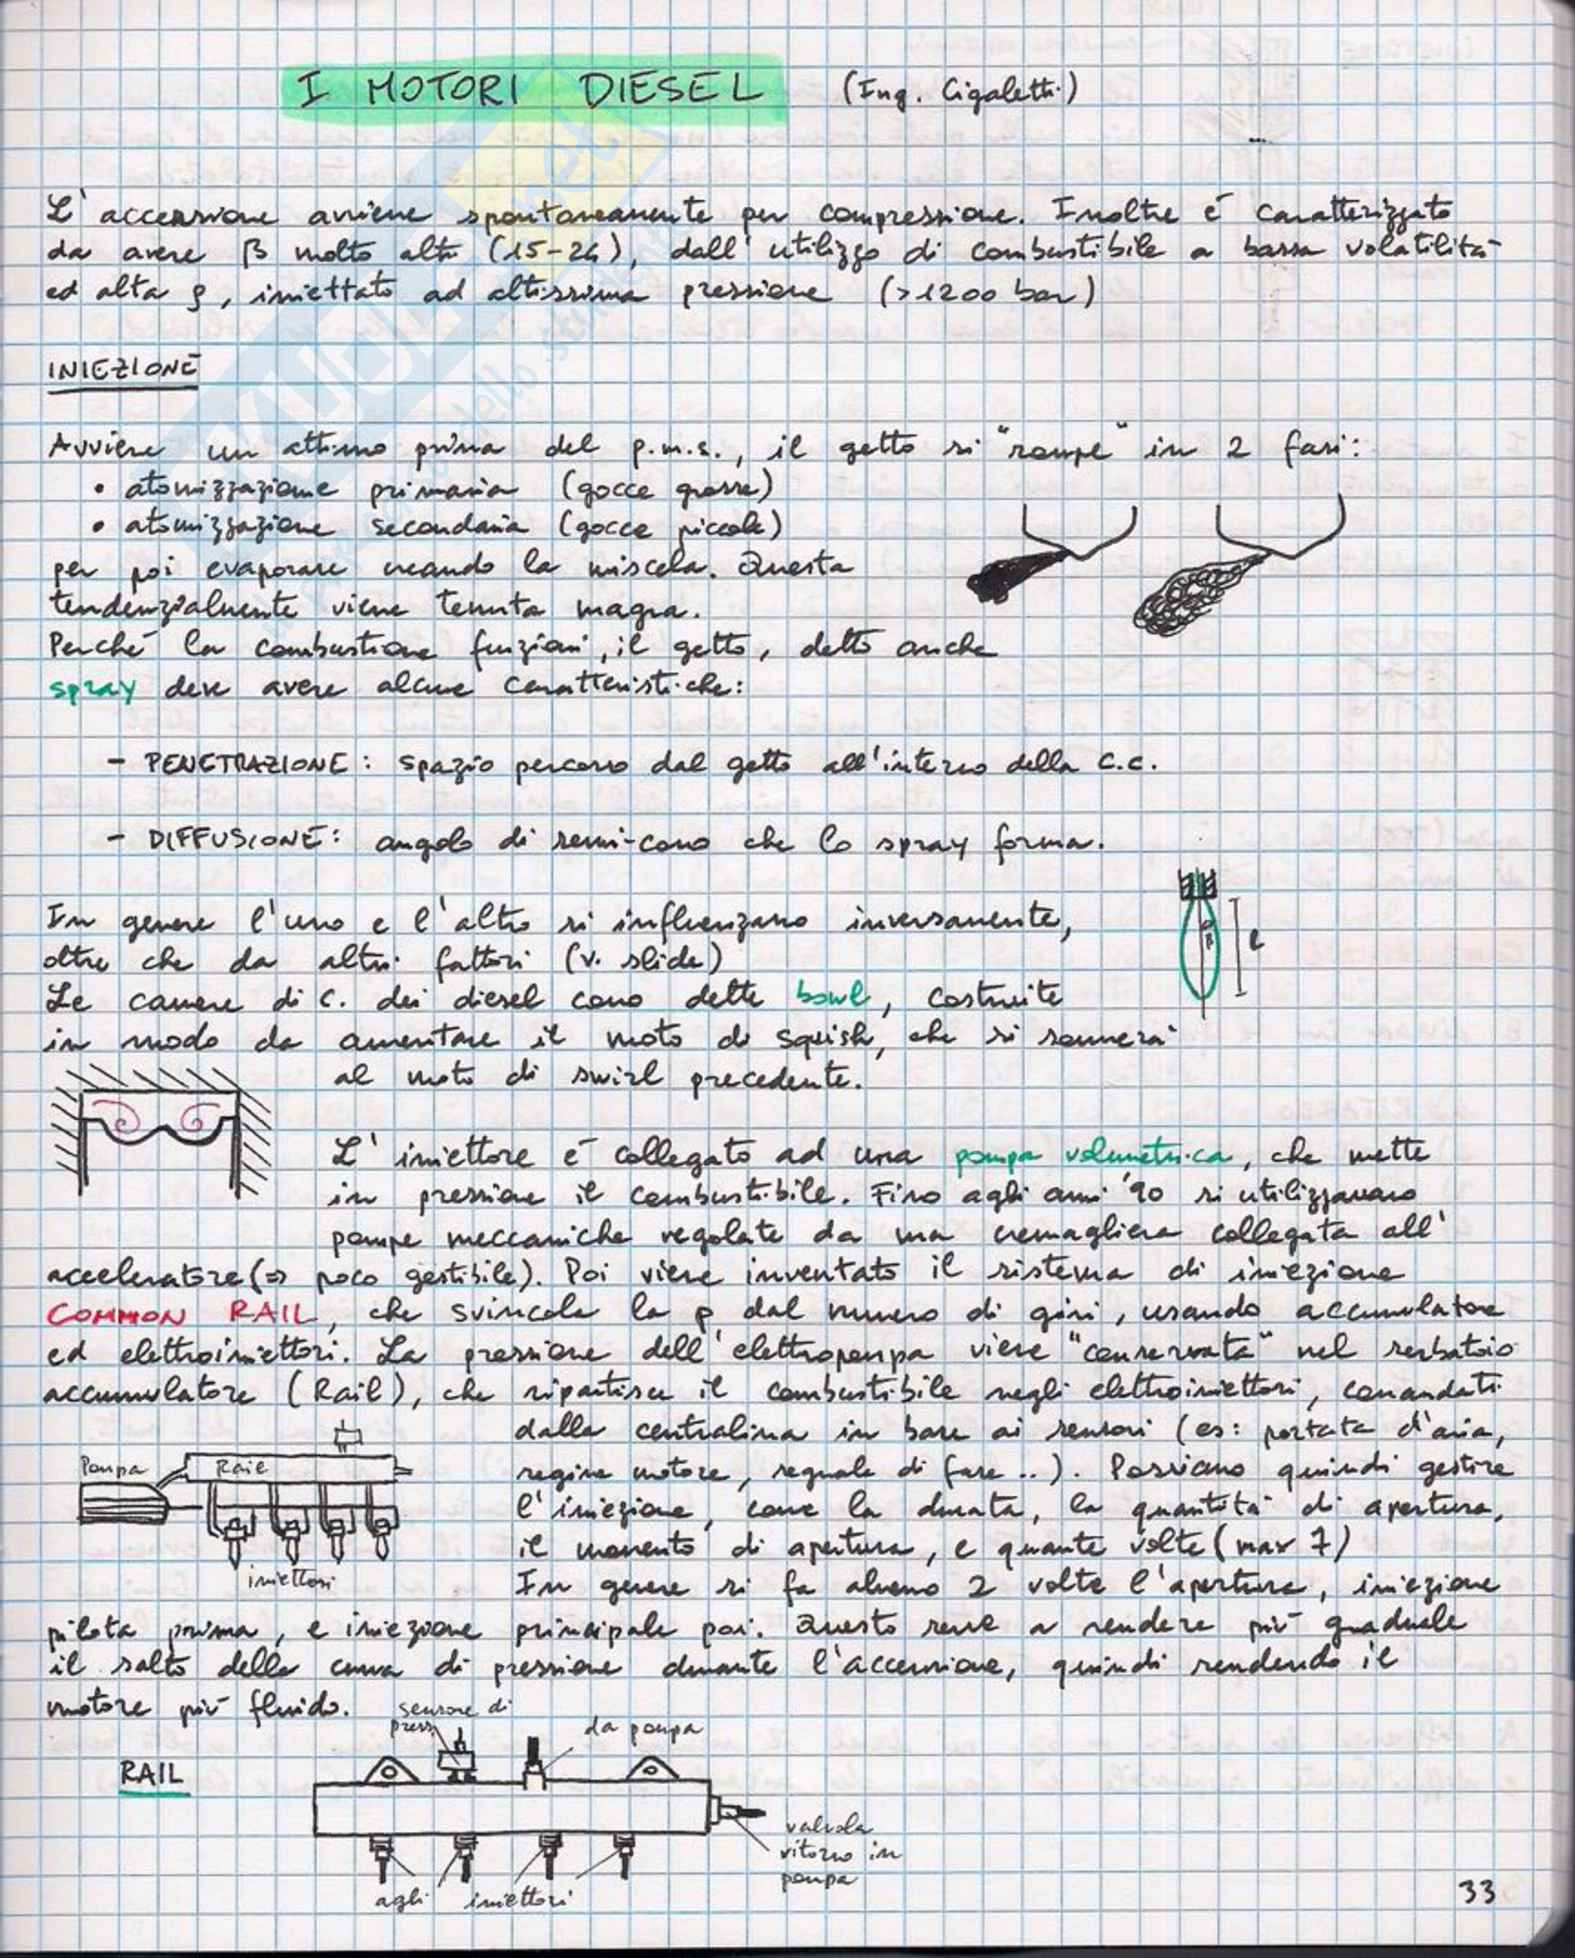 I MOTORI DIESEL (Ing. Cigaletti)
L'accensione avviene spontaneamente per compressione. Inoltre è caratterizzato
da avere β molto alti (15-24), dall'utilizzo di combustibile a bassa volatilità
ed alta ρ, iniettato ad altissima pressione (>1200 bar)
INIEZIONE
Avviene un attimo prima del p.m.s., il getto si "rompe" in 2 fasi:
• atomizzazione primaria (gocce grosse)
• atomizzazione secondaria (gocce piccole)
per poi evaporare creando la miscela. Questa
tendenzialmente viene tenuta magra.
Perché la combustione funzioni, il getto, detto anche
spray deve avere alcune caratteristiche:
- PENETRAZIONE: spazio percorso dal getto all'interno della C.C.
- DIFFUSIONE: angolo di semi-cono che lo spray forma.
In genere l'uno e l'altro si influenzano inversamente,
oltre che da altri fattori (v. slide)
Le camere di C. dei diesel sono dette bowl, costruite
in modo da aumentare il moto di squish, che si sommerà
al moto di swirl precedente.
L'iniettore è collegato ad una pompa volumetrica, che mette
in pressione il combustibile. Fino agli anni '90 si utilizzavano
pompe meccaniche regolate da una cremagliera collegata all'
acceleratore (⇒ poco gestibile). Poi viene inventato il sistema di iniezione
COMMON RAIL, che svincola la p dal numero di giri, usando accumulatore
ed elettroiniettori. La pressione dell'elettropompa viene "conservata" nel serbatoio
accumulatore (Rail), che ripartisce il combustibile negli elettroiniettori, comandati
dalla centralina in base ai sensori (es: portata d'aria,
regime motore, segnale di fase ..). Possiamo quindi gestire
l'iniezione, come la durata, la quantità di apertura,
il momento di apertura, e quante volte (max 7)
Pompa Rail
iniettori
In genere si fa almeno 2 volte l'apertura, iniezione
pilota prima, e iniezione principale poi. Questo serve a rendere più graduale
il salto della curva di pressione durante l'accensione, quindi rendendo il
motore più fluido.
sensore di
press
da pompa
RAIL
valvola
ritorno in
pompa
agli iniettori
33